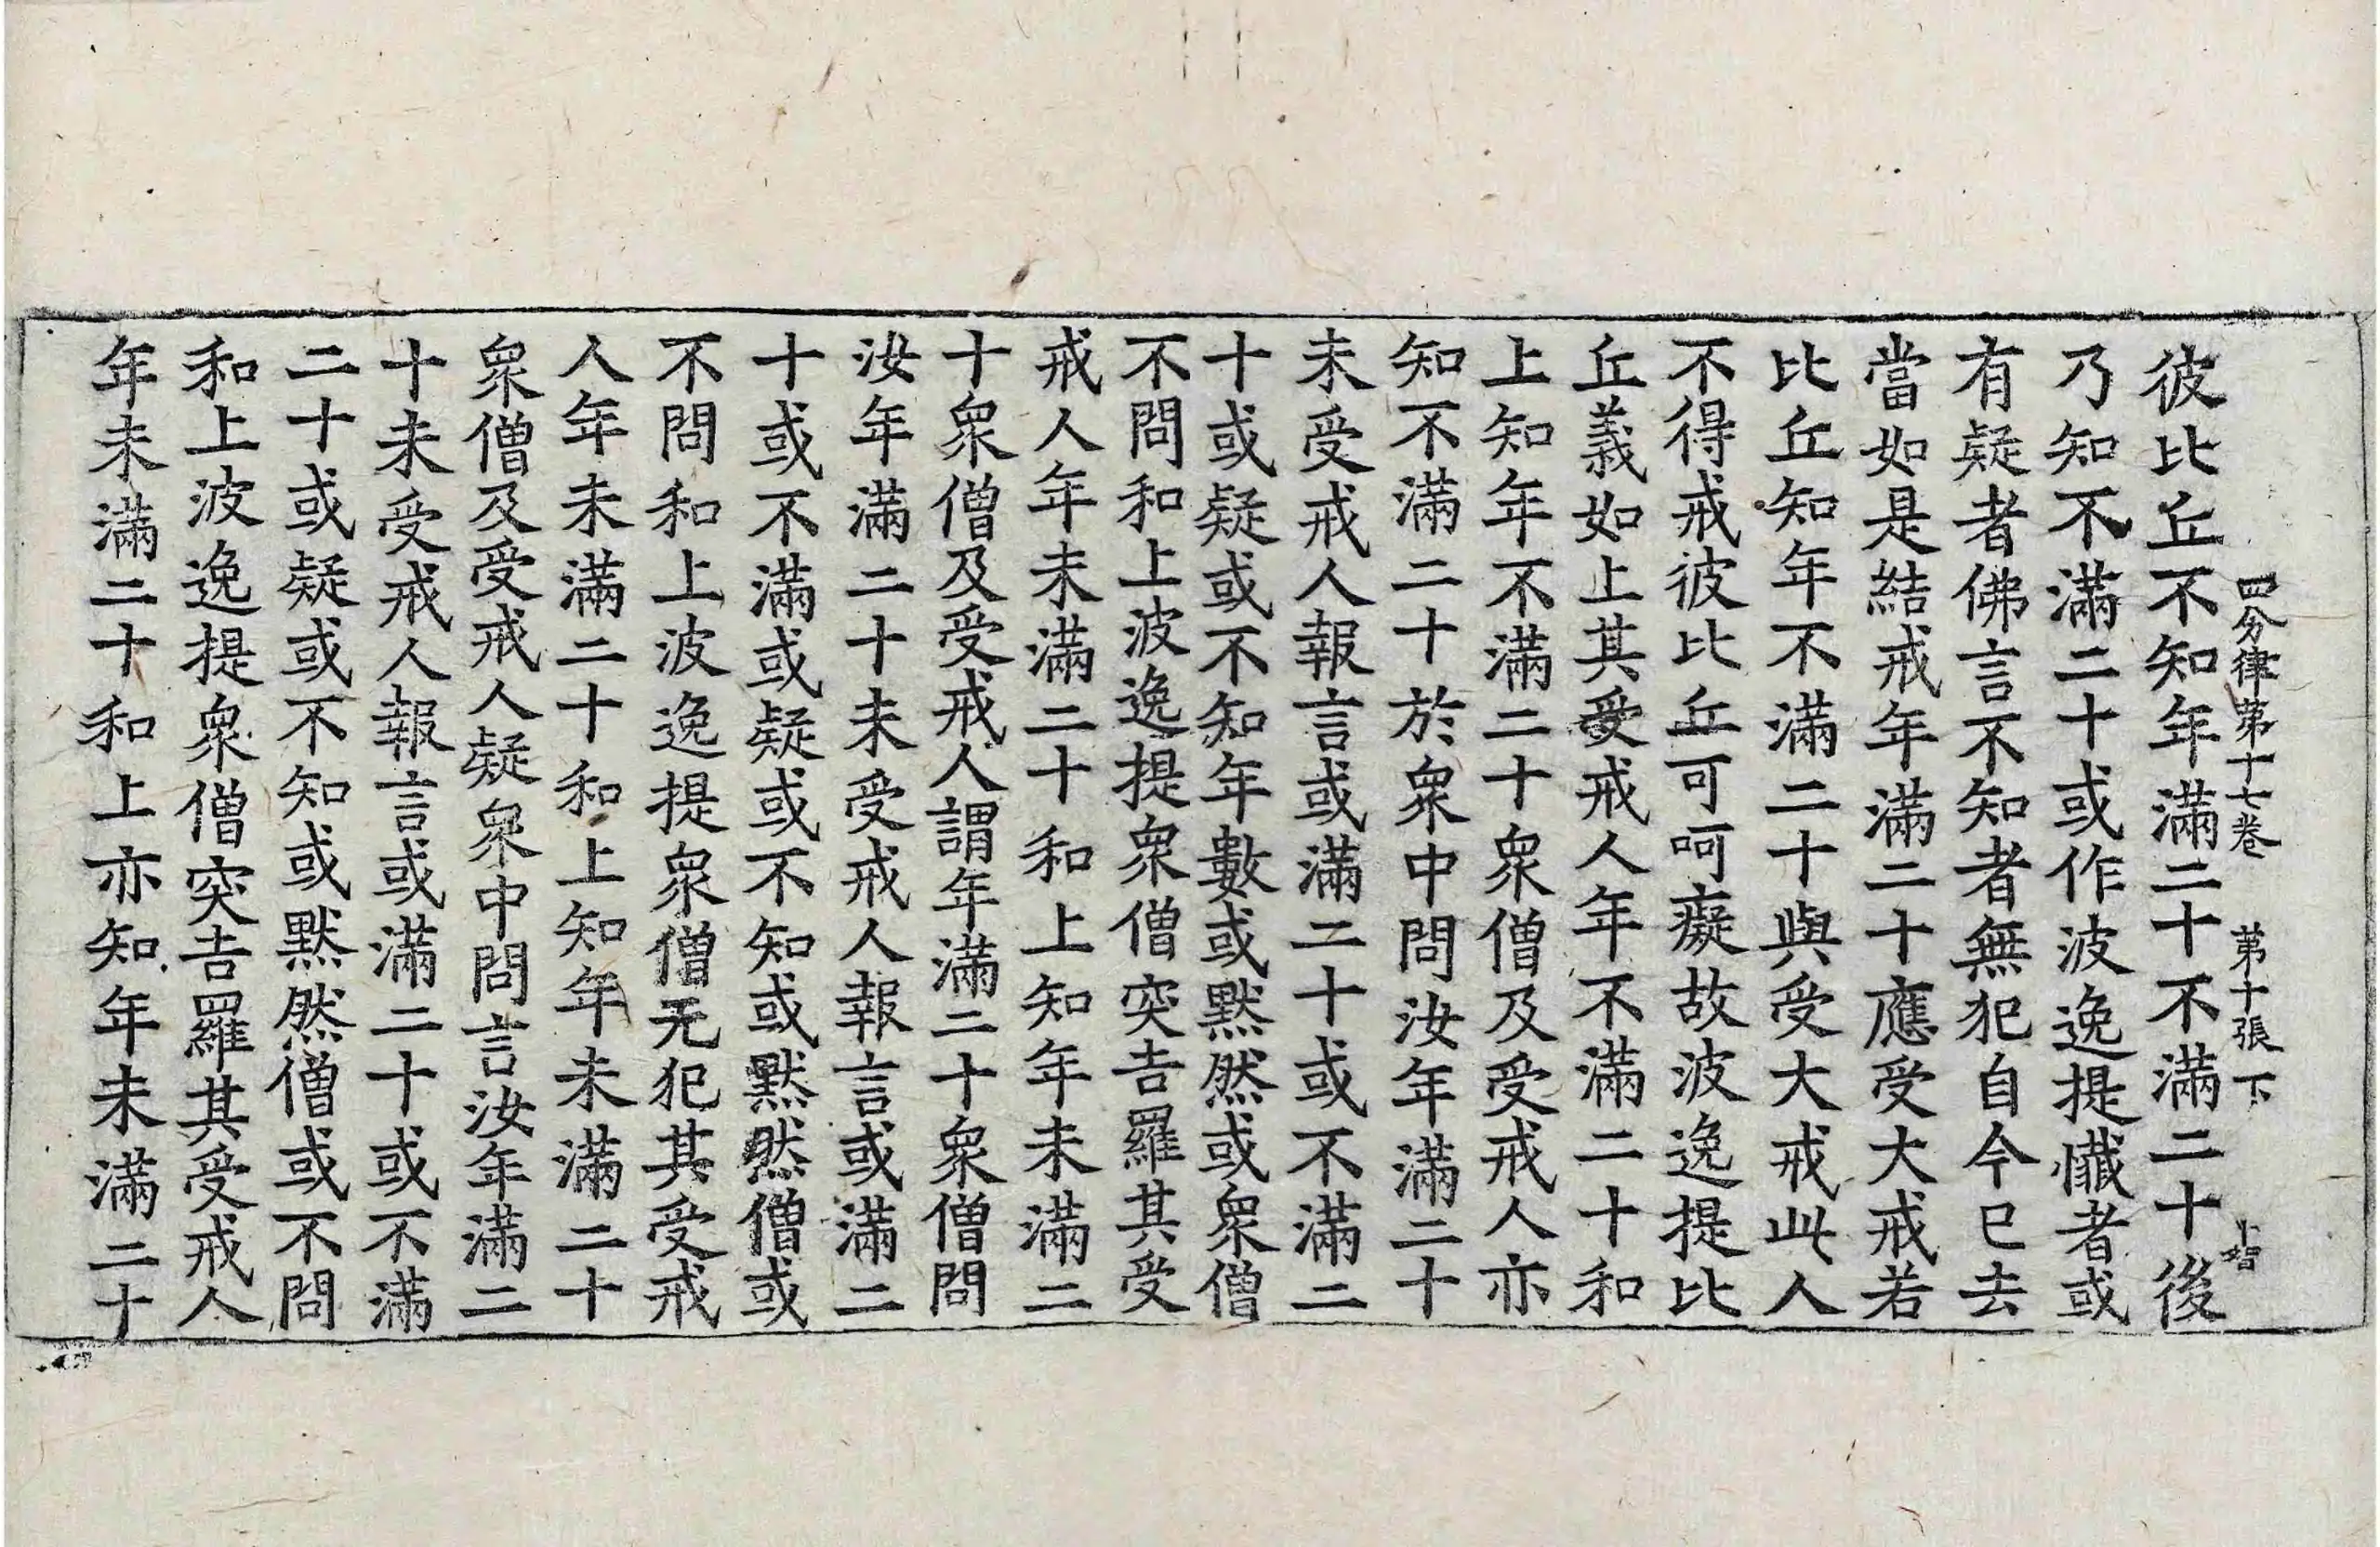 四分律第十七卷 第十張 下
彼比丘不知年滿二十不滿二十後
乃知不滿二十或作波逸提懺者或
有疑者佛言不知者無犯自今已去
當如是結戒年滿二十應受大戒若
比丘知年不滿二十與受大戒此人
不得戒彼比丘可呵癡故波逸提比
丘義如上其受戒人年不滿二十和
上知年不滿二十衆僧及受戒人亦
知不滿二十於衆中問汝年滿二十
未受戒人報言或滿二十或不滿二
十或疑或不知年數或默然或衆僧
不問和上波逸提衆僧突吉羅其受
戒人年未滿二十和上知年未滿二
十衆僧及受戒人謂年滿二十衆僧問
汝年滿二十未受戒人報言或滿二
十或不滿或疑或不知或默然僧或
不問和上波逸提衆僧无犯其受戒
人年未滿二十和上知年未滿二十
衆僧及受戒人疑衆中問言汝年滿二
十未受戒人報言或滿二十或不滿
二十或疑或不知或默然僧或不問
和上波逸提衆僧突吉羅其受戒人
年未滿二十和上亦知年未滿二十